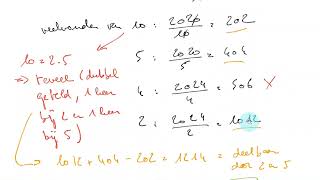 veelvouden van 10 : 2020/10 = 202
10 = 2.5
5 : 2020/5 = 404
→ teveel (dubbel
geteld, 1 keer
bij 2 en 1 keer
bij 5)
4 : 2024/4 = 506 X
2 : 2024/2 = 1012
→ 1012 + 404 - 202 = 1214 = deelbaar
door 2 en 5